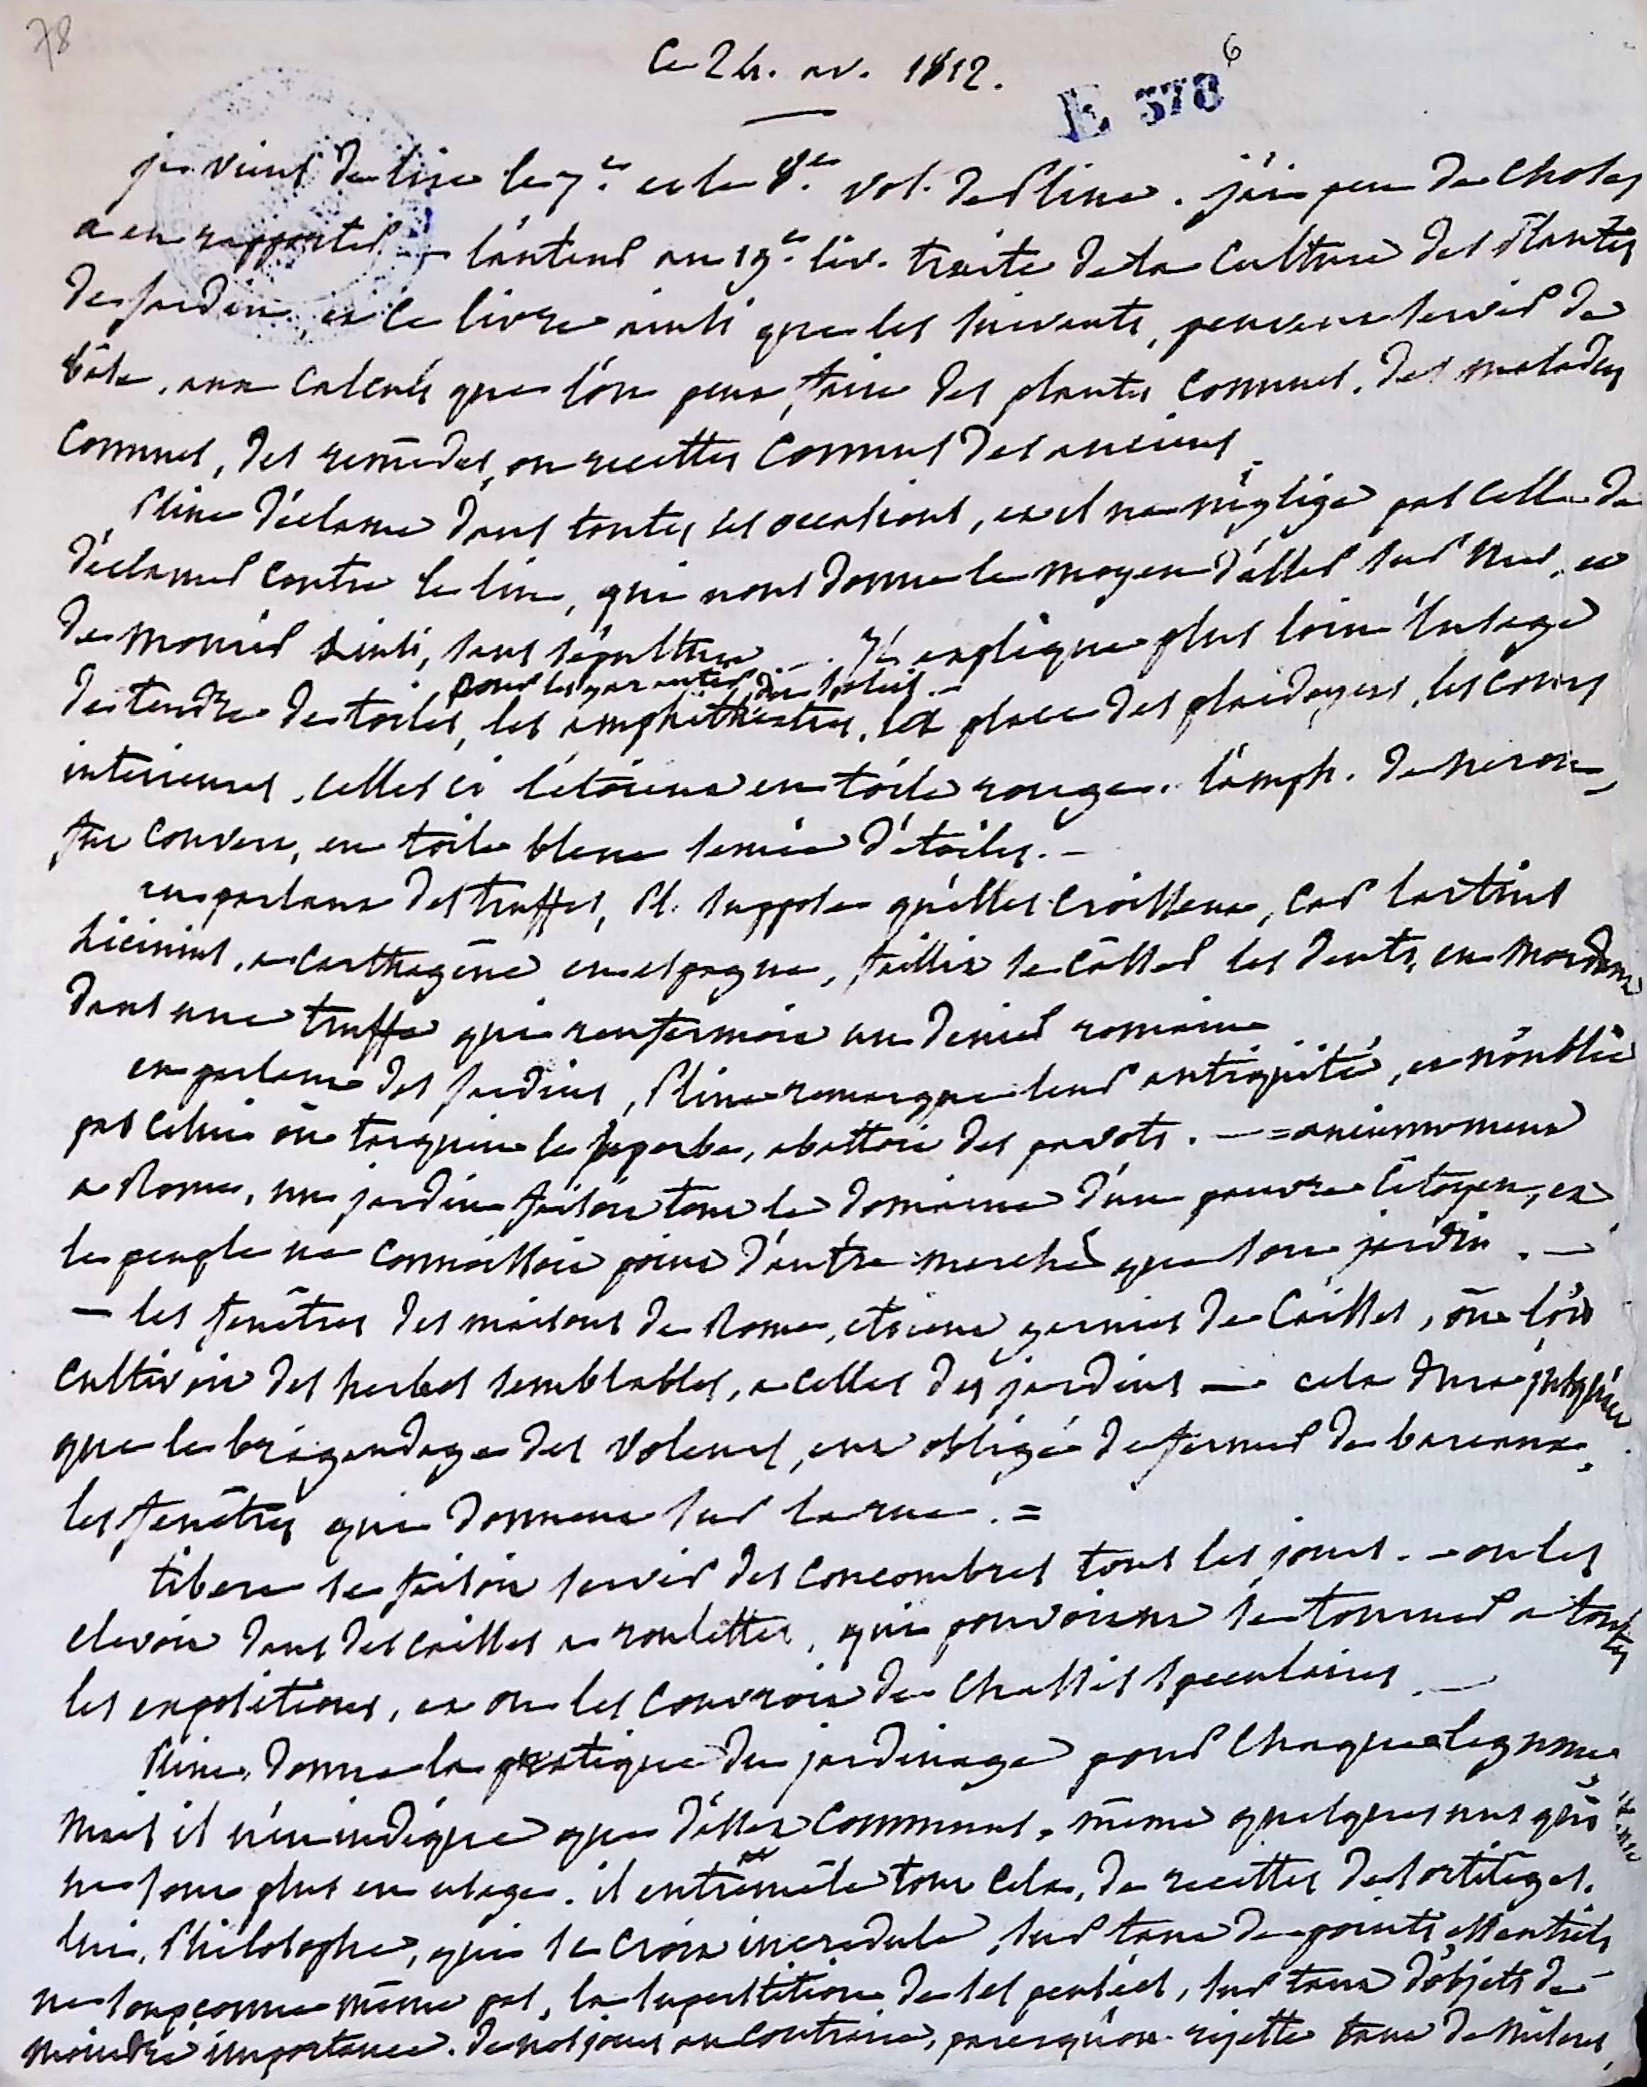 78
Ce 24. av. 1812.
6
E 378
je viens de lire le 7.e et le 8.e vol. de Pline. j'ai peu de choses
a en rapporter. - l'auteur au 19.e liv. traite de la culture des Plantes
de jardin, et ce livre ainsi que les suivants, peuvent servir de
bâse, aux calculs que l'on peut faire des plantes connues, des maladies
connues, des remêdes, ou recettes connues des anciens.
Pline déclame dans toutes les occasions, et il ne néglige pas celle de
déclamer contre le lin, qui nous donne le moyen d'aller sur mer, et
de mourir ainsi, sans sépulture. - . Il explique plus loin l'usage
pour les garantir du soleil. -
de tendre de toiles, les amphithéatres, la place des plaidoyers, les cours
interieures, celles ci l'étoient en toile rouge. l'amph. de neron,
fut couvert, en toile bleue semée d'étoiles. -
en parlant des truffes, Pl. suppose qu'elles croissent, car lartius
licinius, a carthagêne en espagne, faillit se câsser les dents, en mordant
dans une truffe qui renfermoit un denier romain
en parlant des jardins, Pline remarque leur antiquité, et n'oublie
pas celui où tarquin le superbe, abattoit des pavots. - = anciennement
a Rome, un jardin faisoit tout le domaine d'un pauvre citoyen, et
le peuple ne connoissoit point d'autre marché que son jardin. -
- les fenêtres des maisons de Rome, etoient garnies de caisses, où l'on
cultivoit des herbes semblables, a celles des jardins - cela dura jusqu'à ce
que le brigandage des voleurs, eut obligé de fermer de bareaux,
les fenêtres qui donnent sur la rue. =
tibere se faisoit servir des concombres tous les jours. - on les
elevoit dans des caisses a roulettes, qui pouvoient se tourner a toutes
les expositions, et on les couvroit de chassis speculaires. -
Pline, donne la pratique du jardinage pour chaque legume,
mais il n'en indique que d'assez communs, même quelques uns qui
ne sont plus en usage. il entremêle tout cela, de recettes de sortilèges.
lui, Philosophe, qui se croit incredule, sur tant de points essentiels
ne soupçonne même pas, la superstition de ses pensées, sur tant d'objets de
moindre importance. de nos jours au contraire, parcequ'on rejette tant de misères,